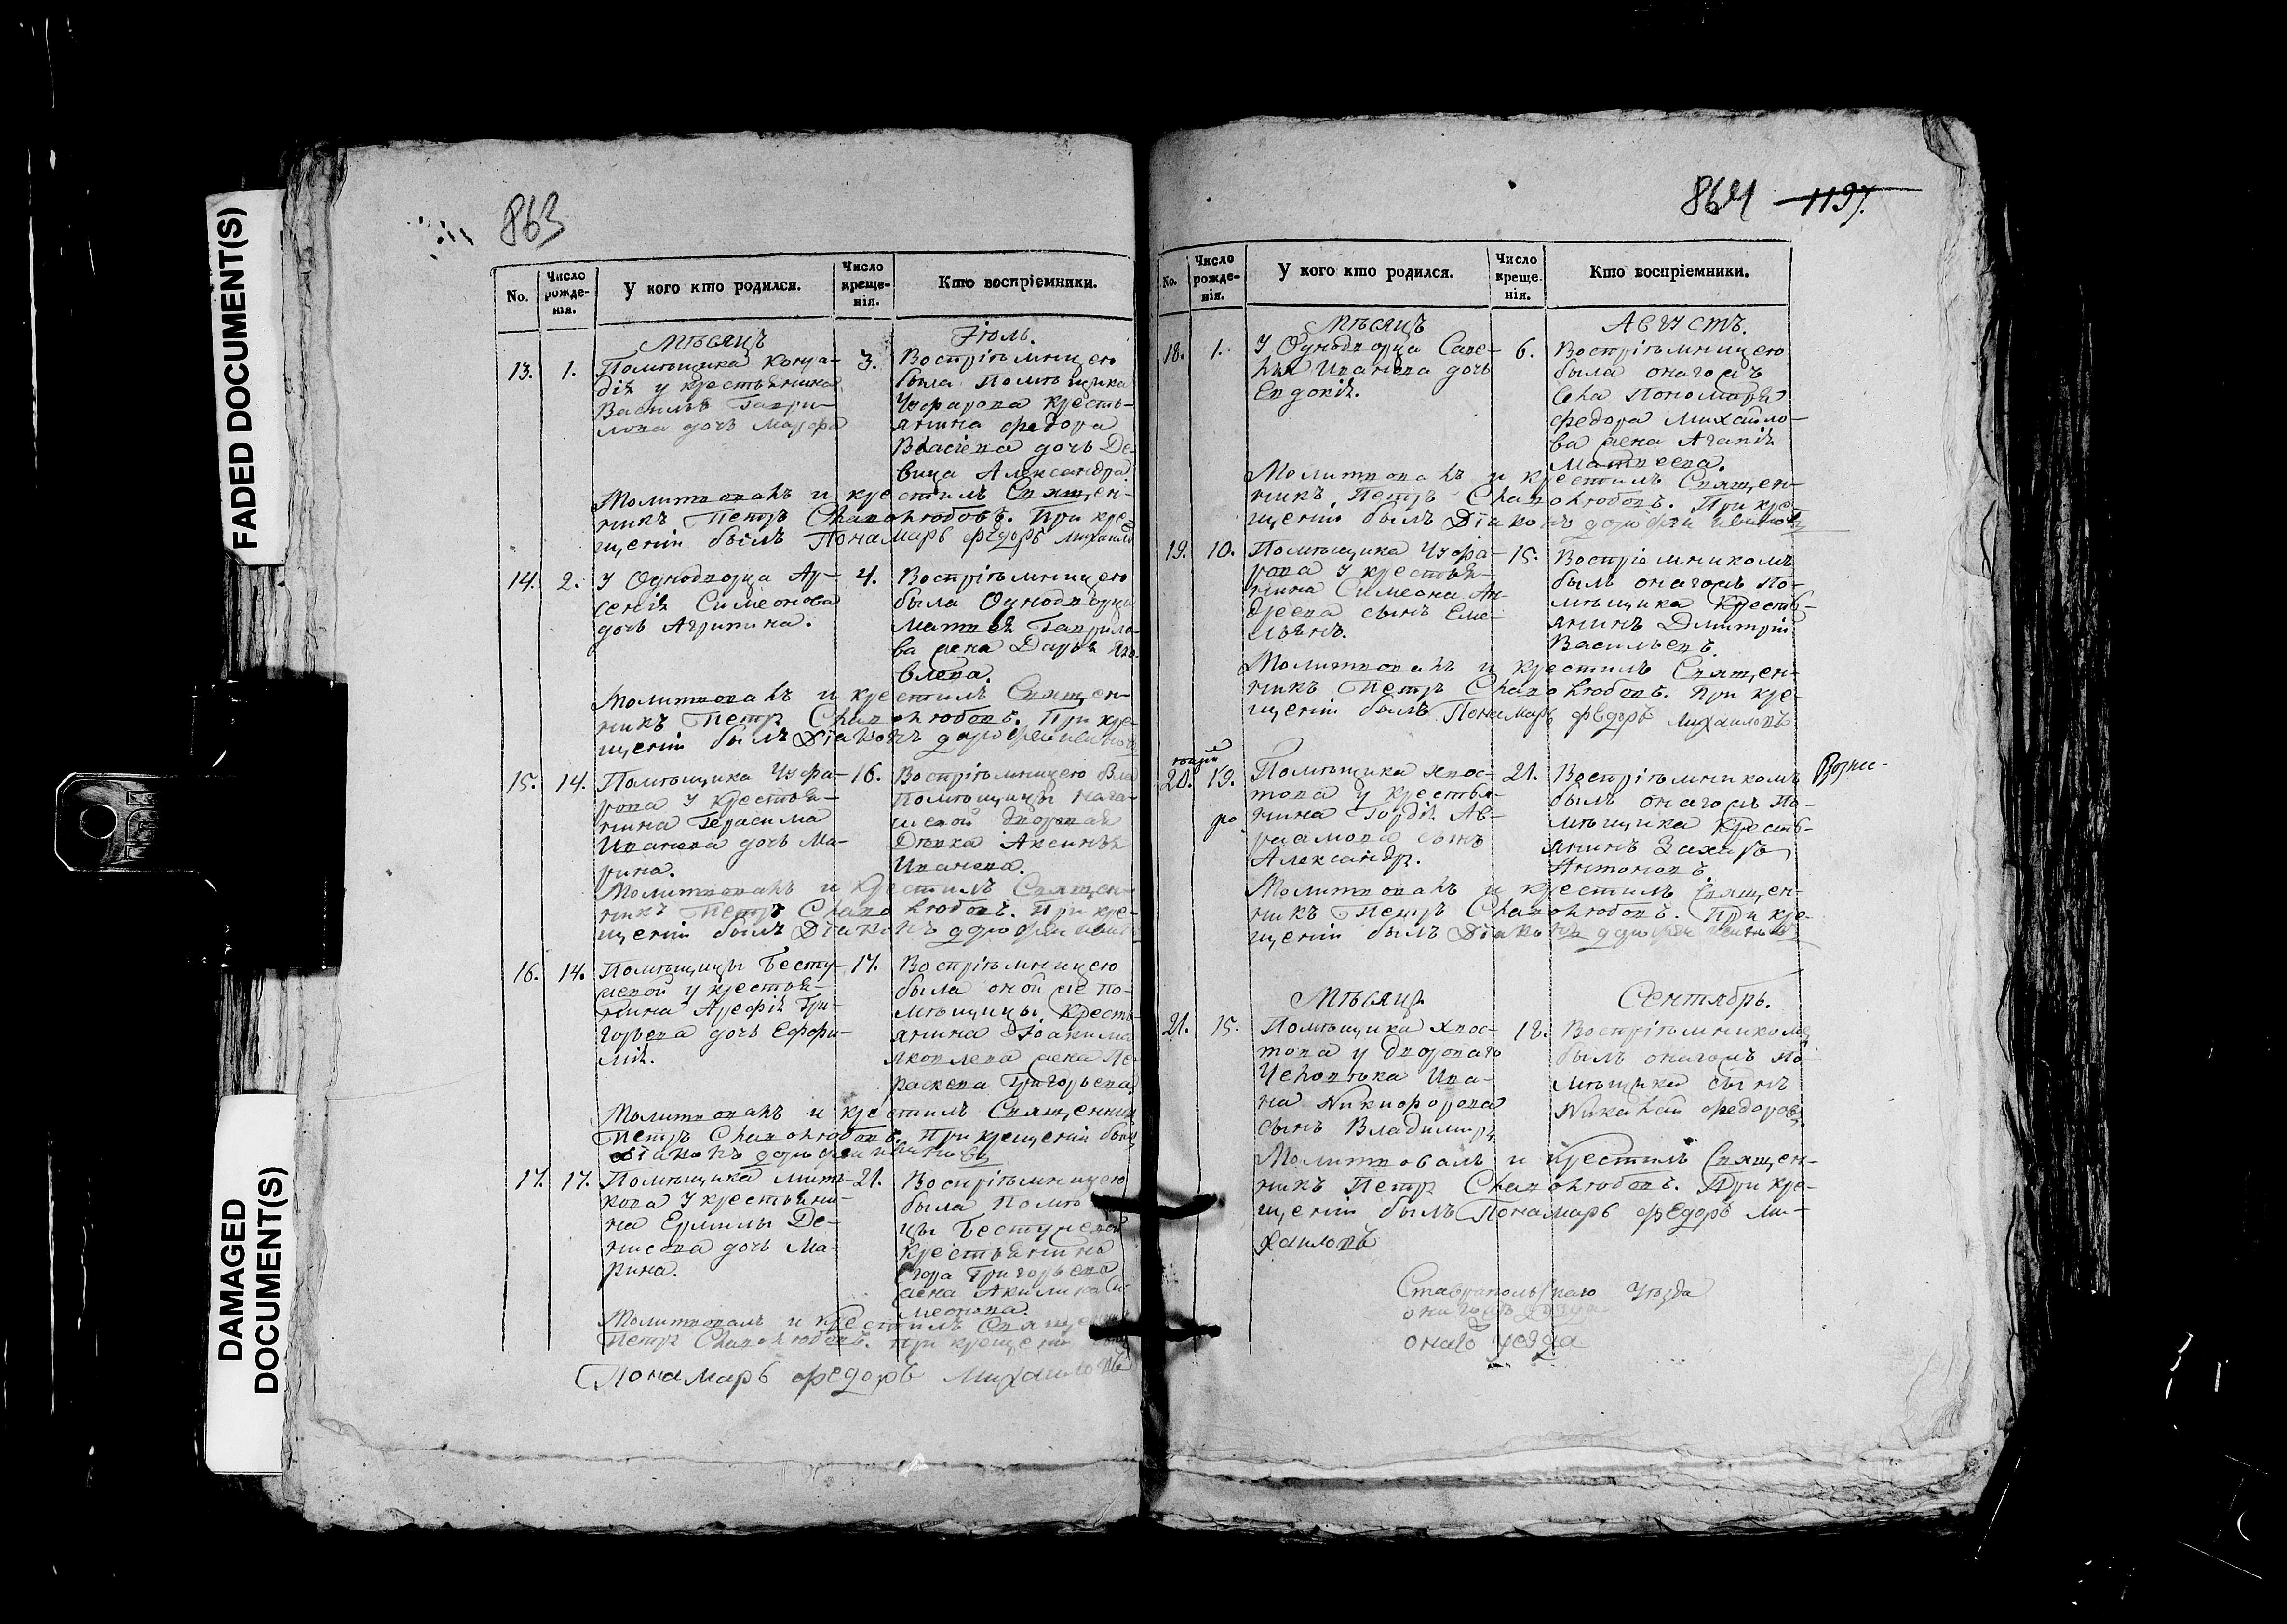 FADED DOCUMENT(S)
DAMAGED
DOCUMENT(S)
863
No.
Число
рожде-
нія.
У кого кто родился.
Число
креще-
нія.
Кто воспріемники.
Мѣсяцъ
Іюль.
13. 1.
Помѣщика Конра-
дія у крестьянина
Василья Гаври-
лова дочь Марфа
3.
Воспріѣмницею
была Помѣщика
Чуфарова кресть-
янина Федора
Власіева дочь Де-
вица Александра.
Молитвовалъ и крестилъ Священ-
никъ Петръ Славолюбовъ. При кре-
щеніи былъ Понамарь Федоръ Михаило
14. 2.
У Однодворца Ар-
сенія Симеонова
дочь Агрипина.
4.
Воспріѣмницею
была Однодворца
Матвея Гаврило-
ва жена Дарья Яко-
влева.
Молитвовалъ и крестилъ Священ-
никъ Петръ Славолюбовъ. При кре-
щеніи былъ Діаконъ
15. 14.
Помѣщика Чуфа-
рова у крестья-
нина Герасима
Иванова дочь Ма-
рина.
16.
Воспріѣмницею
Помѣщицы
дворовая
Девка Аксинья
Иванова.
Молитвовалъ и крестилъ Священ-
никъ Петръ Славолюбовъ. При кре-
щеніи былъ Діаконъ
16. 14.
Помѣщицы Бесту-
жевой у крестья-
нина Арефія Гри-
горьева дочь Ефѳи-
мія.
17.
Воспріѣмницею
была оной же по-
мѣщицы кресть-
янина Іоакима
Яковлева жена Па-
раскева Григорьева
Молитвовалъ и крестилъ Священникъ
Петръ Славолюбовъ. При крещеніи былъ
Діаконъ
17. 17.
Помѣщика Мить-
кова у крестьяни-
на Ермилы Де-
нисова дочь Ма-
рина.
21.
Воспріѣмницею
была Помѣ
цы Бестужевой
крестьянина
Егора Григорьева
жена Акилина Си-
меонова.
Молитвовалъ и крестилъ
Петръ Славолюбовъ. При крещеніи
Понамарь Федоръ Михаиловъ
864 1197.
No.
Число
рожде-
нія.
У кого кто родился.
Число
креще-
нія.
Кто воспріемники.
Мѣсяцъ
Августъ.
18. 1.
У Однодворца Саве-
лья Иванова дочь
Евдокія.
6.
Воспріѣмницею
была онагожъ
села Пономаря
Федора Михайло-
ва жена Агапія
Матвеева.
Молитвовалъ и крестилъ Священ-
никъ Петръ Славолюбовъ. При кре-
щеніи былъ Діаконъ
19. 10.
Помѣщика Чуфа-
рова у крестья-
нина Симеона Ан-
дреева сынъ Еме-
льянъ.
15.
Воспріемникомъ
былъ онагожъ По-
мѣщика Кресть-
янинъ Дмитрій
Васильевъ.
Молитвовалъ и крестилъ Священ-
никъ Петръ Славолюбовъ. При кре-
щеніи былъ Понамарь Федоръ Михаиловъ
20. 19.
Помѣщика Хвос-
това у крестья-
нина Гордія Ав-
раамова сынъ
Александръ.
21.
Воспріѣмникомъ
былъ онагожъ По-
мѣщика Кресть-
янинъ Захаръ
Антоновъ.
Молитвовалъ и крестилъ Священ-
никъ Петръ Славолюбовъ. При кре-
щеніи былъ Діаконъ
Мѣсяцъ
Сентябрь.
21. 15.
Помѣщика Хвос-
това у двороваго
Человѣка Ива-
на Никифорова
сынъ Владимиръ
18.
Воспріѣмникомъ
былъ онагожъ По-
мѣщика сынъ
Николай Федоровъ
Молитвовалъ и крестилъ Священ-
никъ Петръ Славолюбовъ. При кре-
щеніи былъ Понамарь Федоръ Ми-
хаиловъ
Ставропольскаго уѣзда
онаго уезда